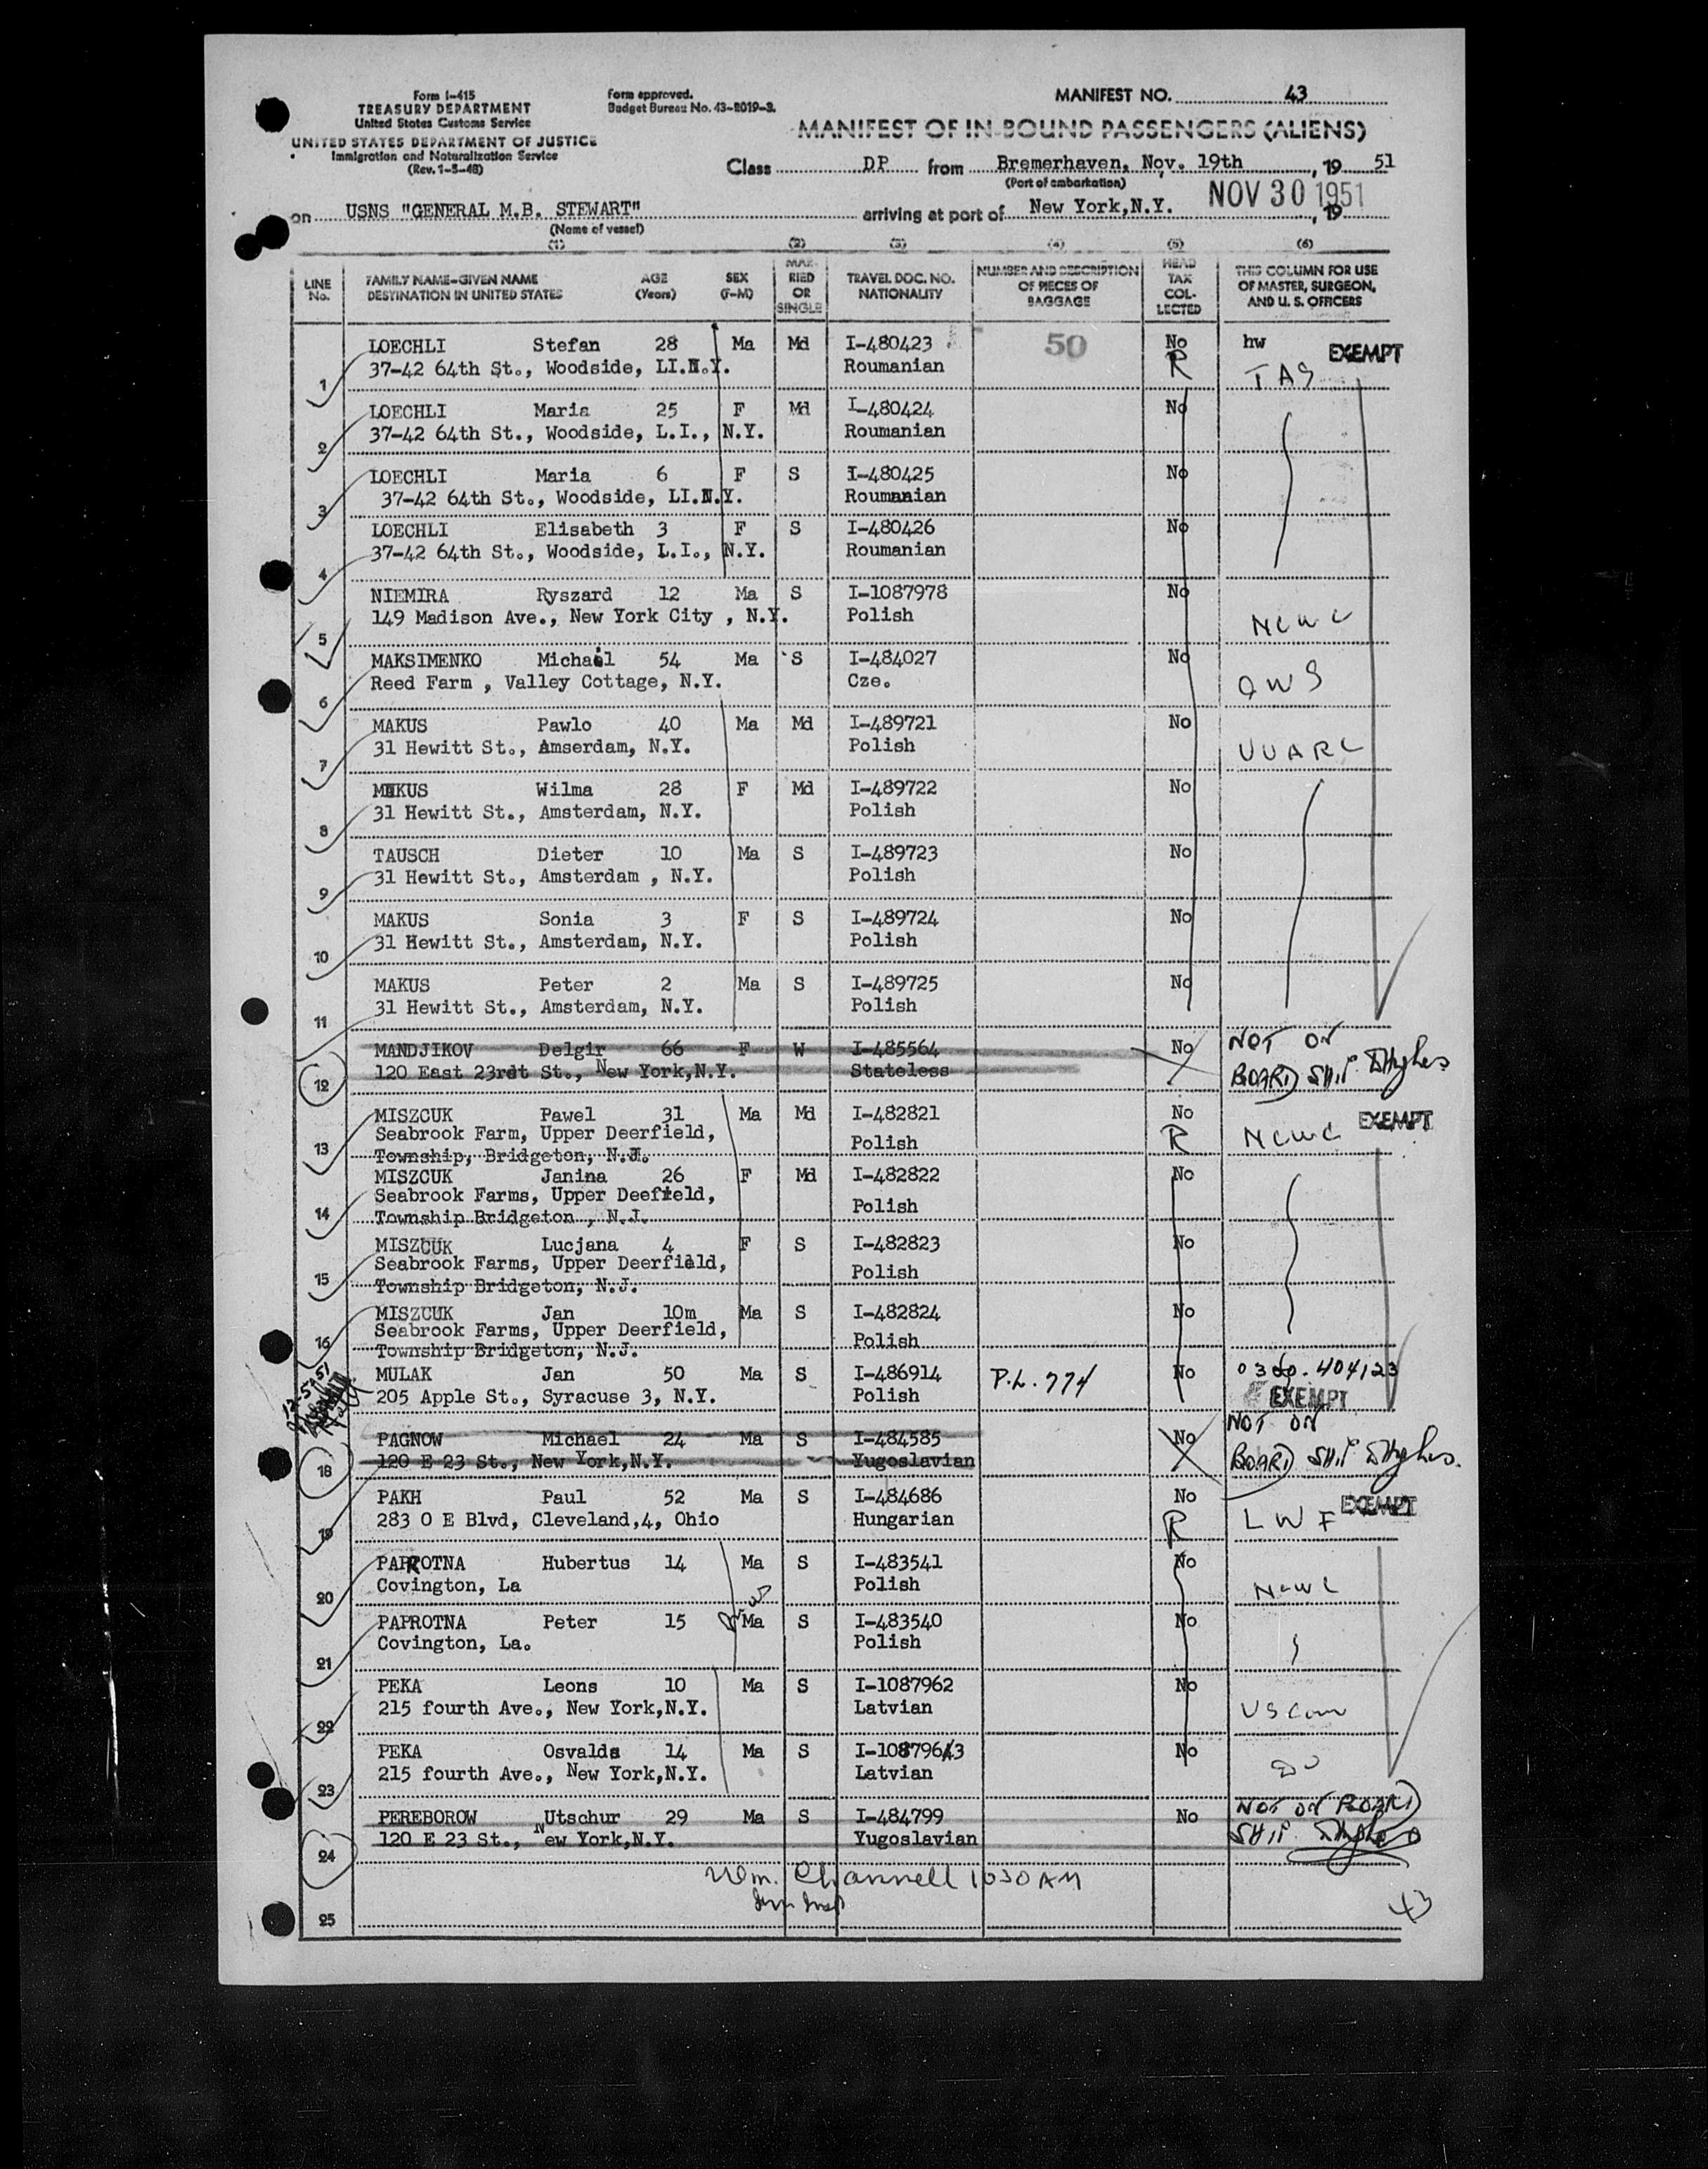 Form I-415
TREASURY DEPARTMENT
United States Customs Service
UNITED STATES DEPARTMENT OF JUSTICE
Immigration and Naturalization Service
(Rev. 1-5-48)
Form approved.
Budget Bureau No. 43-R019-3.
MANIFEST NO. 43
MANIFEST OF IN-BOUND PASSENGERS (ALIENS)
Class DP from Bremerhaven, Nov. 19th, 19 51
(Port of embarkation)
on USNS "GENERAL M.B. STEWART" arriving at port of New York,N.Y. NOV 30 1951, 19
(Name of vessel)
(1) (2) (3) (4) (5) (6)
LINE No. FAMILY NAME-GIVEN NAME DESTINATION IN UNITED STATES AGE (Years) SEX (F-M) MARRIED OR SINGLE TRAVEL DOC. NO. NATIONALITY NUMBER AND DESCRIPTION OF PIECES OF BAGGAGE HEAD TAX COLLECTED THIS COLUMN FOR USE OF MASTER, SURGEON, AND U. S. OFFICERS
LOECHLI Stefan 28 Ma Md I-480423 50 No hw EXEMPT
1 37-42 64th St., Woodside, LI.N.Y. Roumanian R TAS
LOECHLI Maria 25 F Md I-480424 No
2 37-42 64th St., Woodside, L.I., N.Y. Roumanian
LOECHLI Maria 6 F S I-480425 No
3 37-42 64th St., Woodside, LI.N.Y. Roumanian
LOECHLI Elisabeth 3 F S I-480426 No
4 37-42 64th St., Woodside, L.I., N.Y. Roumanian
NIEMIRA Ryszard 12 Ma S I-1087978 No
5 149 Madison Ave., New York City , N.Y. Polish NCWC
MAKSIMENKO Michail 54 Ma S I-484027 No
6 Reed Farm , Valley Cottage, N.Y. Cze.
MAKUS Pawlo 40 Ma Md I-489721 No
7 31 Hewitt St., Amserdam, N.Y. Polish UUARC
MAKUS Wilma 28 F Md I-489722 No
8 31 Hewitt St., Amsterdam, N.Y. Polish
TAUSCH Dieter 10 Ma S I-489723 No
9 31 Hewitt St., Amsterdam , N.Y. Polish
MAKUS Sonia 3 F S I-489724 No
10 31 Hewitt St., Amsterdam, N.Y. Polish
MAKUS Peter 2 Ma S I-489725 No
11 31 Hewitt St., Amsterdam, N.Y. Polish
MANDJIKOV Delgir 66 F W I-485564 No NOT ON
12 120 East 23rdt St., New York,N.Y. Stateless BOARD SHIP
MISZCUK Pawel 31 Ma Md I-482821 No EXEMPT
13 Seabrook Farm, Upper Deerfield, Polish R NCWC
Township, Bridgeton, N.J.
MISZCUK Janina 26 F Md I-482822 No
14 Seabrook Farms, Upper Deefield, Polish
Township Bridgeton , N.J.
MISZCUK Lucjana 4 F S I-482823 No
15 Seabrook Farms, Upper Deerfield, Polish
Township Bridgeton, N.J.
MISZCUK Jan 10m Ma S I-482824 No
16 Seabrook Farms, Upper Deerfield, Polish
Township Bridgeton, N.J.
MULAK Jan 50 Ma S I-486914 P.L. 774 No 404123
205 Apple St., Syracuse 3, N.Y. Polish EXEMPT
PAGNOW Michael 24 Ma S I-484585 No NOT ON
18 120 E 23 St., New York,N.Y. Yugoslavian BOARD SHIP
PAKH Paul 52 Ma S I-484686 No EXEMPT
19 283 O E Blvd, Cleveland,4, Ohio Hungarian R LWF
PAPROTNA Hubertus 14 Ma S I-483541 No
20 Covington, La Polish NCWC
PAPROTNA Peter 15 Ma S I-483540 No
21 Covington, La. Polish
PEKA Leons 10 Ma S I-1087962 No
22 215 fourth Ave., New York,N.Y. Latvian USCom
PEKA Osvalds 14 Ma S I-1087963 No
23 215 fourth Ave., New York,N.Y. Latvian Do
PEREBOROW Utschur 29 Ma S I-484799 No NOT ON BOARD
24 120 E 23 St., New York,N.Y. Yugoslavian SHIP
Wm. Channell 1030 AM
25 43